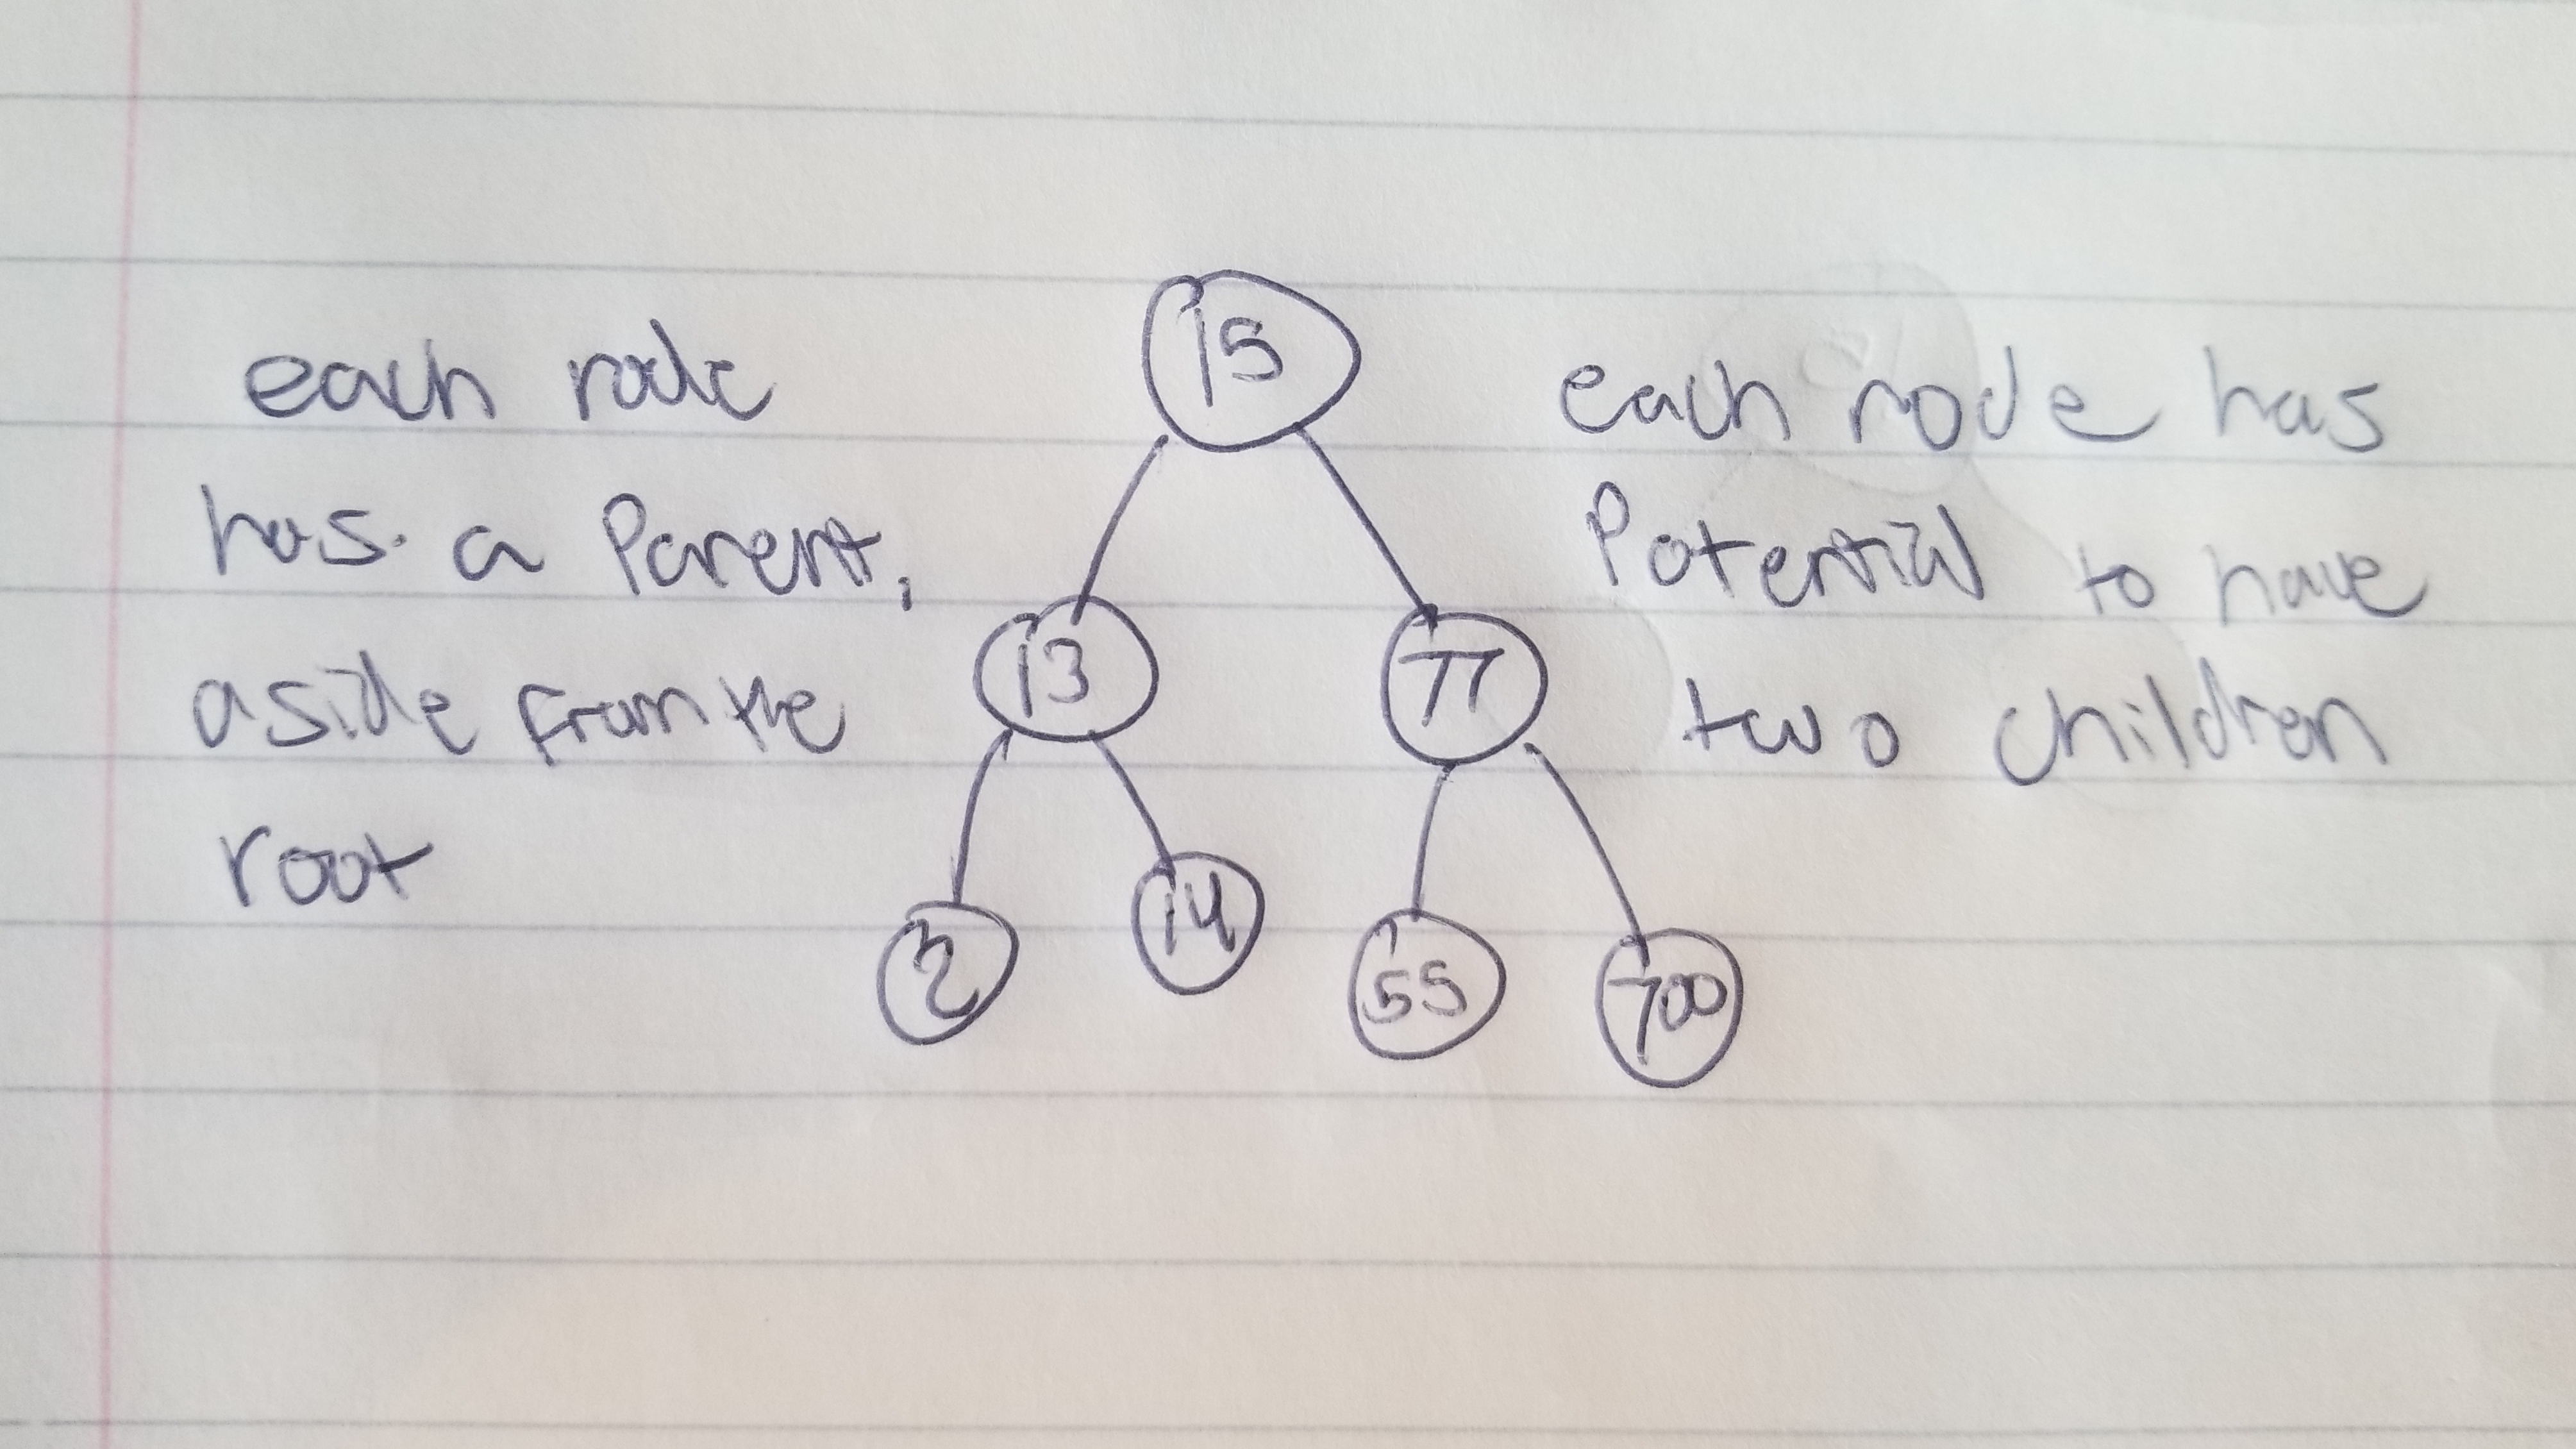 each node
has a Parent,
aside from the
root
15
13
77
2
14
55
700
each node has
Potential to have
two children